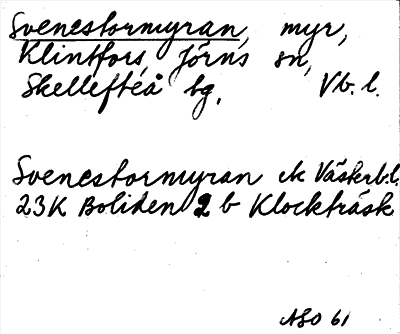 Svenestormyran, myr,
Klintfors, Jörns sn,
Skellefteå bg. Vb. l.
Svenestormyran ek Västerb.l.
23K Boliden 2 b Klockträsk
ASO 61